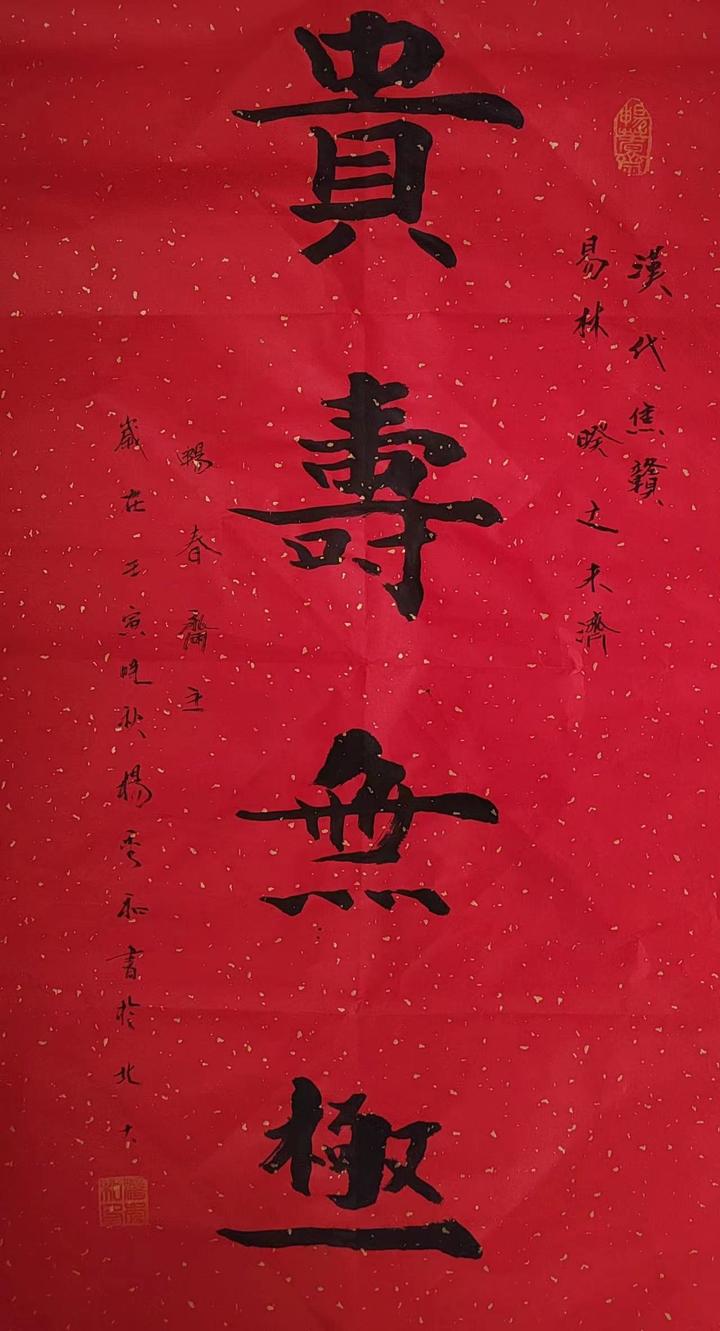 暢春齋
漢代焦贛
易林 睽之未濟
貴壽無極
暢春齋主
歲在壬寅晚秋楊雲和書於北大